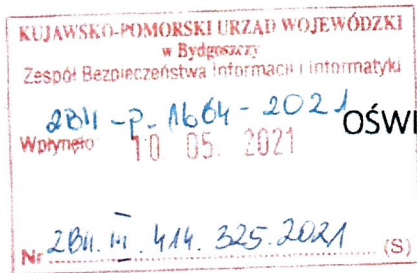 KUJAWSKO-POMORSKI URZĄD WOJEWÓDZKI
w Bydgoszczy
Zespół Bezpieczeństwa Informacji i Informatyki
2BII-P-1664-2021
OŚWI
Wpłynęło 10 05. 2021
Nr 2BII.III.414.325.2021 (S)